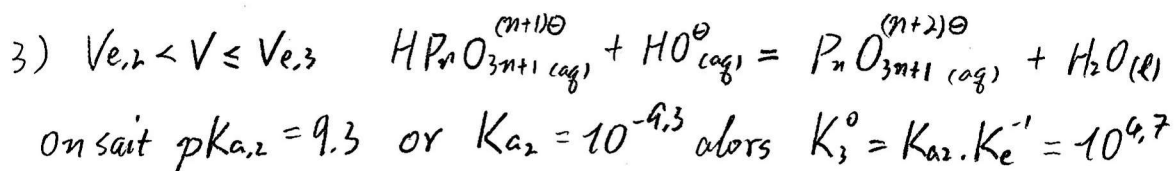 3) Ve,2 < V ≤ Ve,3 HPnO3n+1 (aq)^(n+1)⊖ + HO⊖(aq) = PnO3n+1 (aq)^(n+2)⊖ + H2O(l)
On sait pKa,2 = 9.3 or Ka2 = 10^-9,3 alors K3° = Ka2.Ke^-1 = 10^4,7